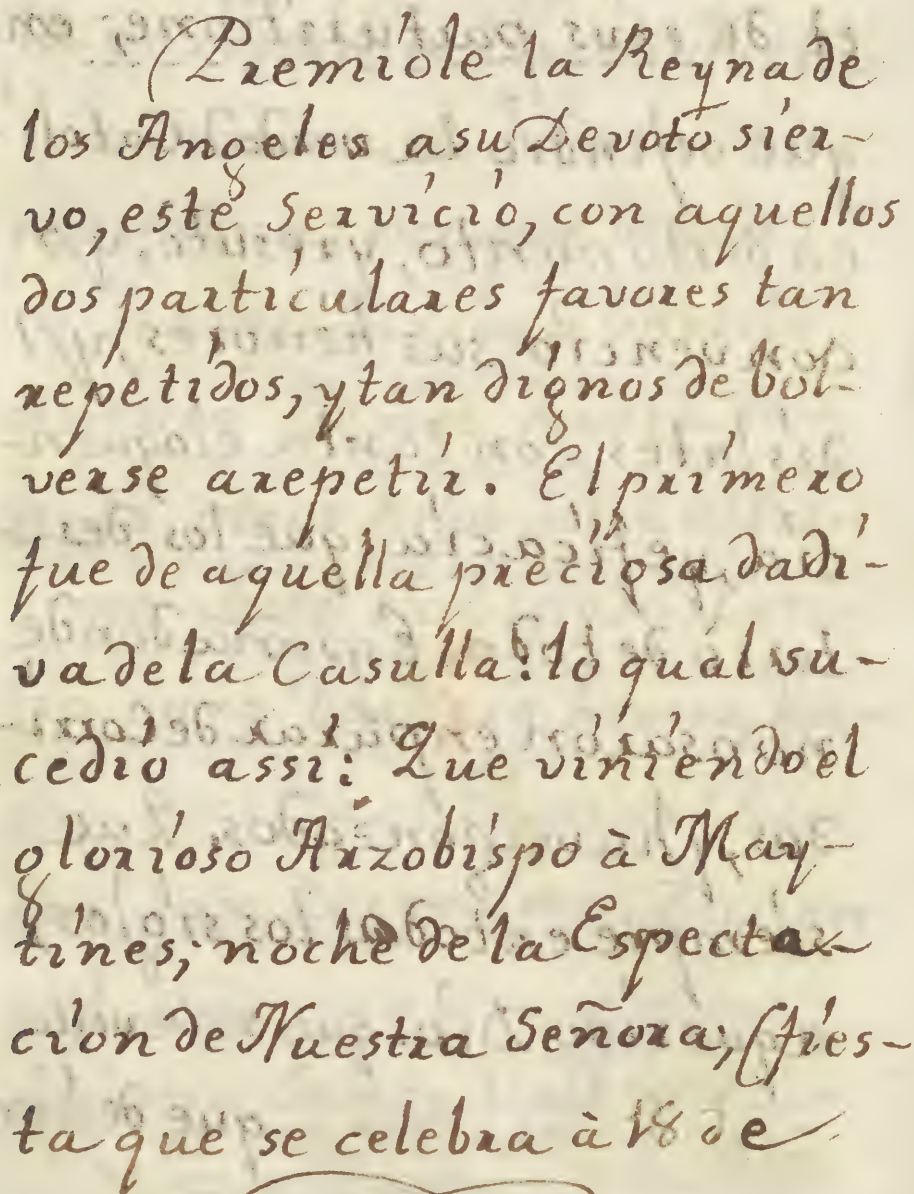 Premióle la Reyna de
los Angeles a su Devoto sier-
vo, este Servicio, con aquellos
dos particulares favores tan
repetidos, y tan dignos de bol-
verse arepetir. El primero
fue de aquella preciosa dadi-
va de la Casulla: lo qual su-
cedio assi: Que viniendo el
glorioso Arzobispo à May-
tines, noche de la Especta-
cion de Nuestra Señora; (fies-
ta que se celebra à 18 de